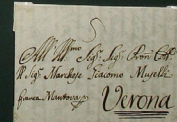 All' Ill.mo Sig.r Sig.r Pron Coll.
Il Sig.r Marchese Giacomo Muselli
franca Mantova
Verona